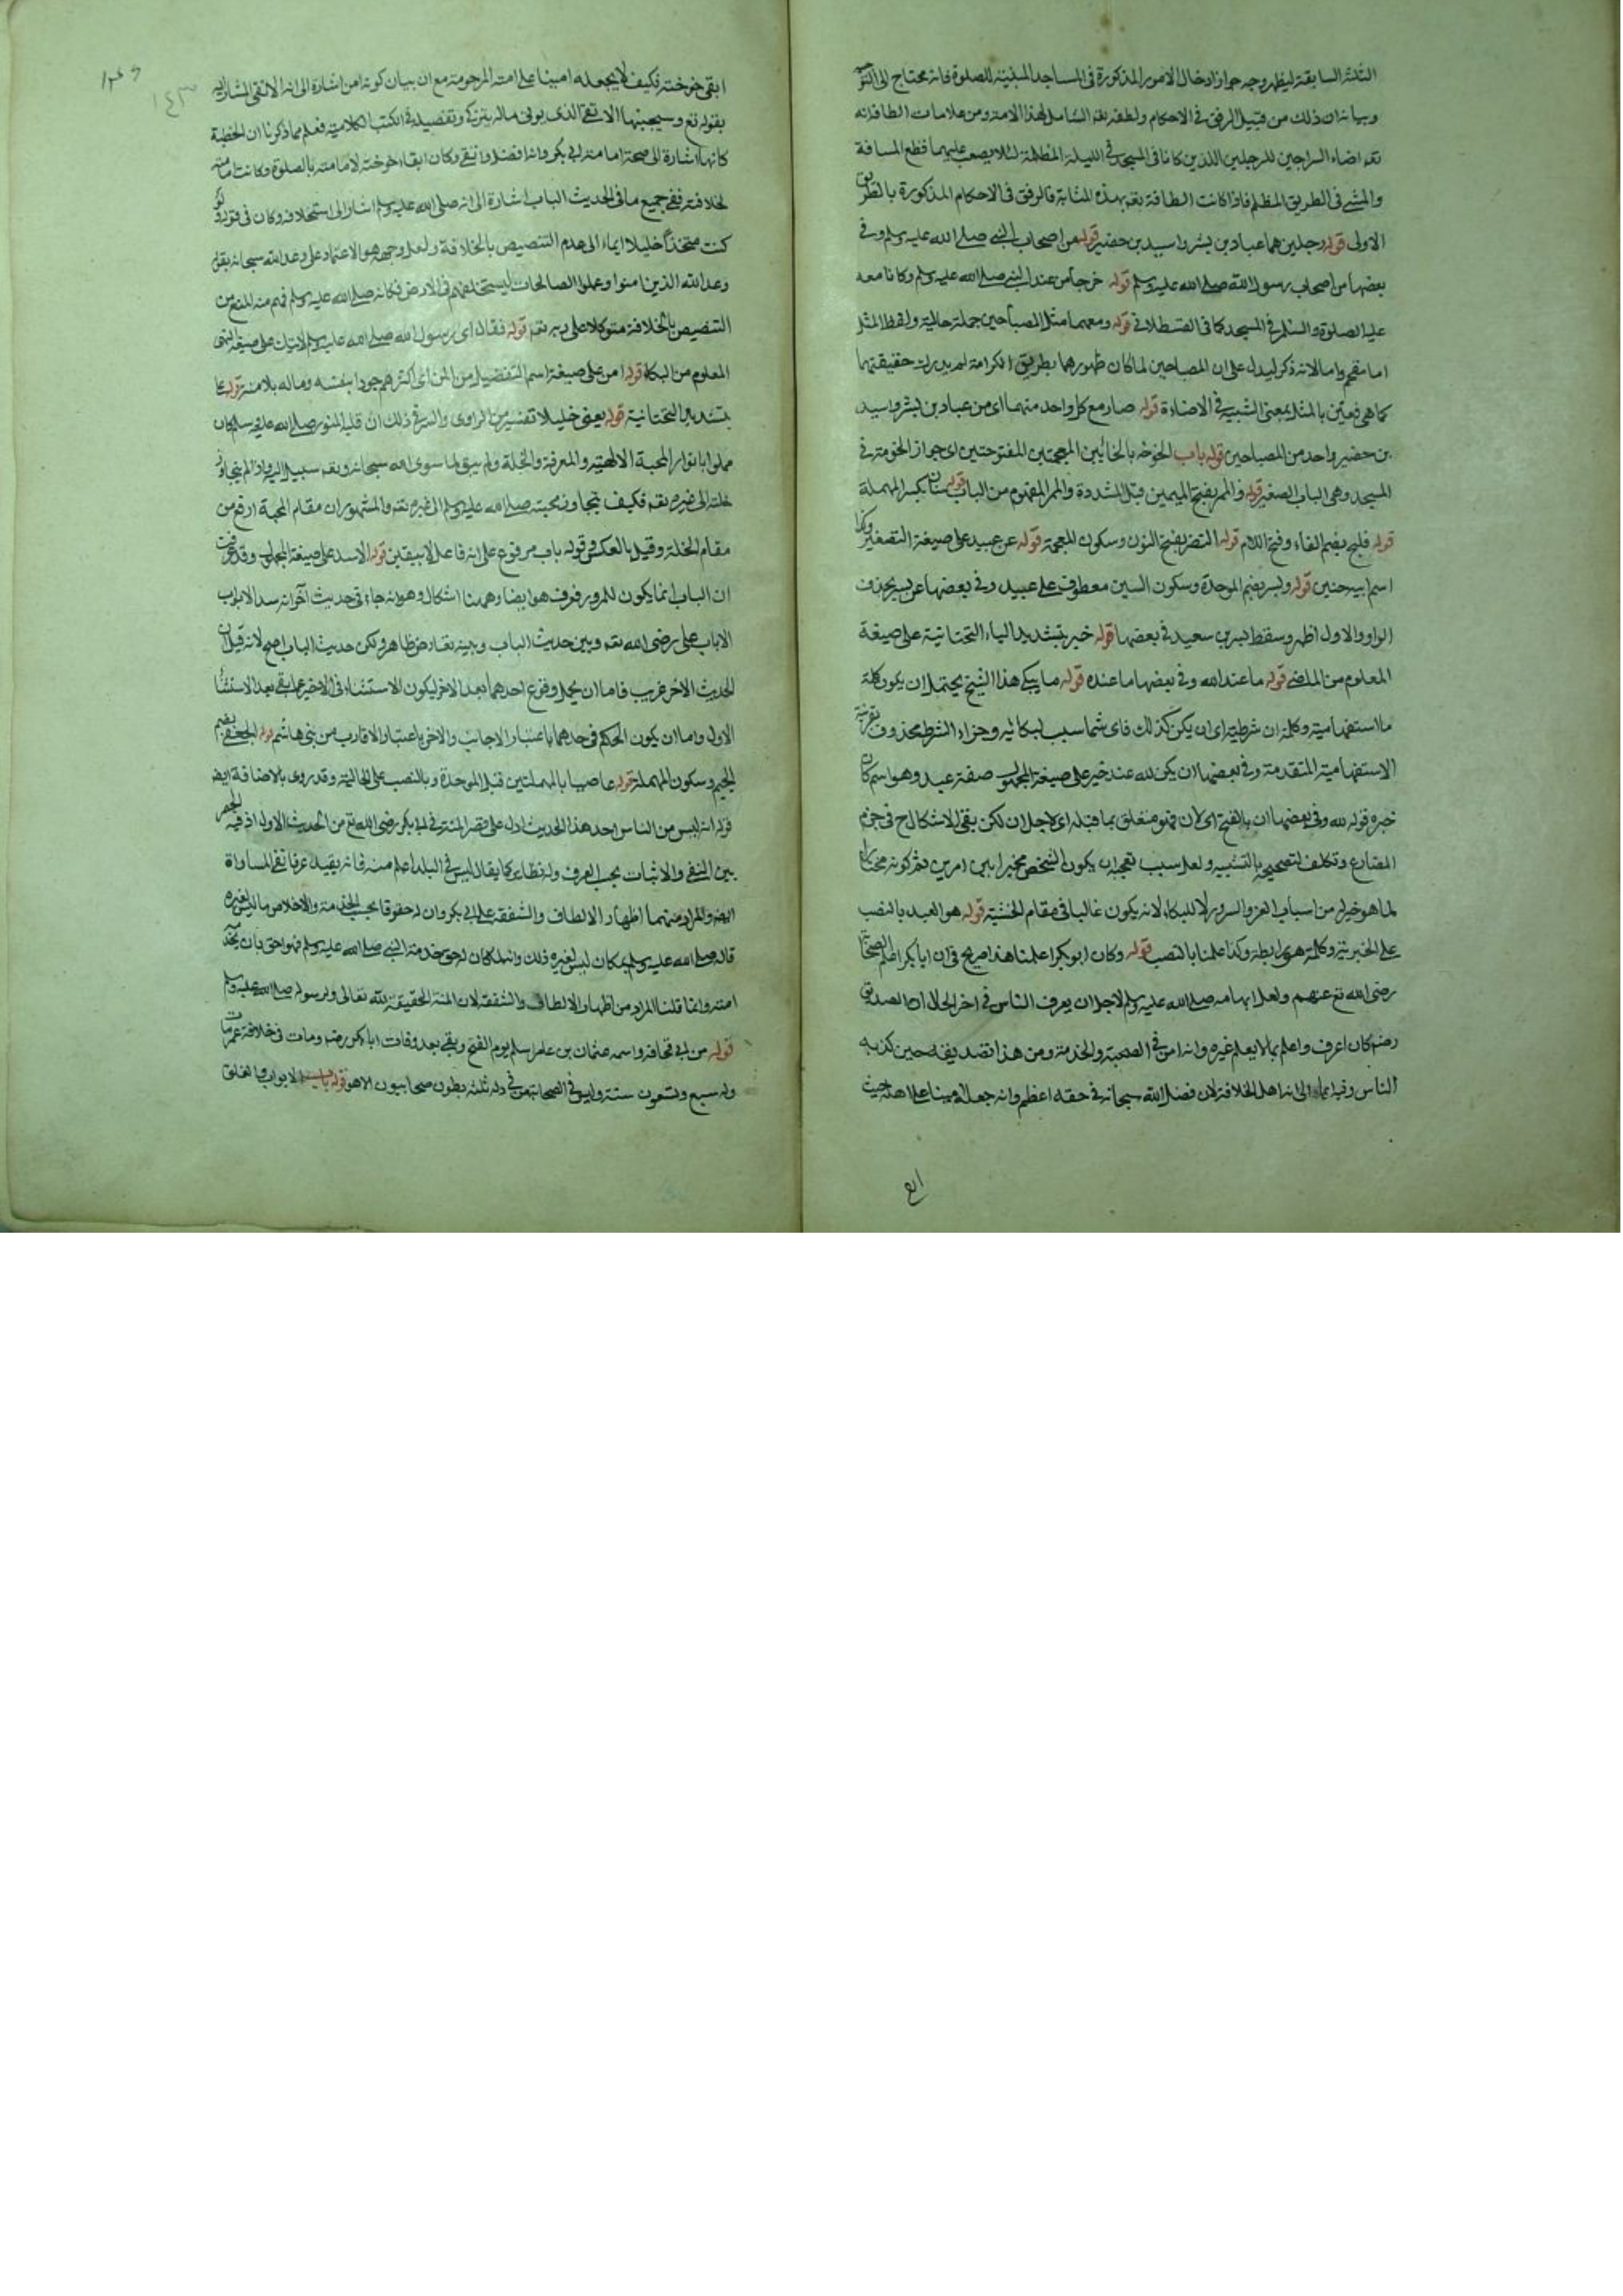 الثلثة السابقة ليظهر وجه جواز ادخال الامور المذكورة فى المساجد المبنية للصلوة فانه محتاج الى
وبيانه ان ذلك من قبيل الرفق فى الاحكام ولطفه تعم الشامل لهذا الامة ومن علامات الطافه انه
تعم اضاء السراجين للرجلين اللذين كانا فى المسجد فى الليلة المظلمة لئلا يصعب عليهما قطع المسافة
والمشى فى الطريق المظلم فاذا كانت الطافه تعم بهذه المثابة فالرفق فى الاحكام المذكورة بالطريق
الاولى قوله رجلين هما عباد بن بشر واسيد بن حضير قوله من اصحاب النبى صلى الله عليه وسلم وفى
بعضها من اصحاب رسول الله صلى الله عليه وسلم قوله خرجا من عند النبى صلى الله عليه وسلم وكانا معه
عليه الصلوة والسلم فى المسجد كما فى القسطلانى قوله ومعهما مثل المصباحين جملة حالية ولفظ المثل
اما مقحم واما لانه ذكر ليدل على ان المصباحين لما كان ظهورهما بطريق الكرامة لم يدرك حقيقتهما
كما هى فعبّن بالمثل بمعنى الشبيه فى الاضاءة قوله صار مع كل واحد منهما اى من عباد بن بشر واسيد
بن حضير واحد من المصباحين قوله باب الخوخه بالخائين المعجمتين المفتوحتين اى جواز الخوخة فى
المسجد وهى الباب الصغير قوله والممر بفتح الميمين قبل المشددة والممر المفهوم من الباب قوله سنان بكسر المهملة
قوله فليح بضم الفاء وفتح اللام قوله النضر بفتح النون وسكون المعجمة قوله عن عبيد على صيغة التصغير وكذا
اسم ابيه حنين قوله وبسر بضم الموحدة وسكون السين معطوف على عبيد وفى بعضها عن بسر بحذف
الواو والاول اظهر وسقط بسر بن سعيد فى بعضها قوله خير بتشديد الياء التحتانية على صيغة
المعلوم من الماضى قوله ما عند الله وفى بعضها ما عنده قوله ما يبكى هذا الشيخ يحتمل ان يكون كلمة
ما استفهامية وكلمة ان شرطية اى ان يكن كذلك فاى شئ سبب لبكائه وجزاء الشرط محذوف بقرينة
الاستفهامية المتقدمة وفى بعضها ان يكن لله عند خير على صيغة المجهول صفة عبد وهو اسم كان
خبره قوله لله وفى بعضها ان بالفتح اى لان فهو متعلق بما قبله اى لاجل ان لكن بقى الاشكال ح فى جزم
المضارع وتكلف لتصحيحه بالتشبيه ولعل سبب تعجبه ان يكون الشخص مخيرا بين امرين ثم كونه مختارا
لما هو خير له من اسباب العز والسرور لا للبكاء لانه يكون غالبا فى مقام الخشية قوله هو العبد بالنصب
على الخبرية وكلمة هو رابطة وكذا علمنا بالنصب قوله وكان ابو بكر اعلمنا هذا صريح فى ان ابا بكر اعلم الصحابة
رضى الله تع عنهم ولعل ابهامه صلى الله عليه وسلم لاجل ان يعرف الناس فى اخر الحال ان الصديق
رضه كان اعرف واعلم بما لا يعلم غيره وانه امن فى الصحبة والخدمة ومن هذا تصديقه حين كذبه
الناس وفيه ايماء الى انه اهل الخلافة لان فضل الله سبحانه فى حقه اعظم وانه جعله امينا على اهله حيث
ابقى
ابقى خوخته فكيف لا يجعله امينا على امته المرحومة مع ان بيان كونه امن اشارة الى انه الاتقى المشار اليه
بقوله تع وسيجنبها الاتقى الذى يوتى ماله يتزكى وتفصيله فى الكتب الكلامية فعلم مما ذكرنا ان الخطبة
كانها اشارة الى صحة امامة ابى بكر وانه افضل واتقى وكان ابقاء خوخته لامامته بالصلوة وكانت امامته
لخلافته ففى جميع ما فى الحديث الباب اشارة الى انه صلى الله عليه وسلم اشار الى استخلافه وكان فى قوله لو
كنت متخذا خليلا ايماء الى عدم التنصيص بالخلافة ولعل وجهه هو الاعتماد على وعد الله سبحانه بقوله
وعد الله الذين امنوا وعملوا الصالحات ليستخلفنهم فى الارض فكانه صلى الله عليه وسلم فهم منه المنع من
التنصيص بالخلافة متوكلا على ربه تعم قوله فقال اى رسول الله صلى الله عليه وسلم لا تبك على صيغة النهى
المعلوم من البكاء قوله امن على صيغة اسم التفضيل من المن اى اكثرهم جودا بنفسه وماله بلا منة قوله على
بتشديد التحتانية قوله يعنى خليلا تفسير من الراوى والسر فى ذلك ان قلبه المنور صلى الله عليه وسلم كان
مملوا بانوار المحبة الالهية والمعرفة والخلة ولم يبق لما سوى الله سبحانه وتعم سبيل اليه واذا لم يتجاوز
خلته الى غيره تعم فكيف يتجاوز محبته صلى الله عليه وسلم الى غيره تعم والمشهور ان مقام المحبة ارفع من
مقام الخلة وقيل بالعكس وقوله باب مرفوع على انه فاعل لا يبقين قوله الا سد على صيغة المجهول وقد عرفت
ان الباب انما يكون للمرور فعرف هو ايضا وههنا اشكال وهو انه جاء فى حديث آخر انه سد الابواب
الا باب على رضى الله تعم وبين حديث الباب وبينه تعارض ظاهر ولكن حديث الباب اصح لانه قيل ان
الحديث الاخر غريب فاما ان يحمل وقوع احدهما بعد الاخر ليكون الاستثناء فى الاخير عما بقى بعد الاستثناء
الاول واما ان يكون الحكم فى احدهما باعتبار الاجانب والاخر باعتبار الاقارب من بنى هاشم قوله الجعفى بضم
الجيم وسكون المهملة قوله عاصبا بالمهملتين قبل الموحدة وبالنصب على الحالية وقد روى بالاضافة ايضه
قوله انه ليس من الناس احد هذا الحديث ادل على قصر المنة فى ابى بكر رضى الله تع من الحديث الاول اذ فيه الحصر
بين النفى والاثبات بحسب العرف وله نظائر كما يقال ليس فى البلد اعلم منه فانه يفيد عرفا نفى المساواة
ايضه والمراد منهما اظهار الالطاف والشفقة على ابى بكر وان له حقوقا بحسب الخدمة والاخلاص ما ليس لغيره
قاله صلى الله عليه وسلم كان ليس لغيره ذلك وانه لكان له حق خدمة النبى صلى الله عليه وسلم فهو احق بان يتخذ
امته وانما قلنا المراد من اظهار الالطاف والشفقة لان المنة الحقيقية لله تعالى ولرسوله صلى الله عليه وسلم
قوله من ابى قحافة واسمه عثمان بن عامر اسلم يوم الفتح وبقى بعد وفات ابا بكر رضه ومات فى خلافة عمر مات
وله سبع وتسعون سنة وليس فى الصحابة من فى ولده ثلثة بطون صحابيون الا هو قوله باب الابواب والغلق
١٤٣